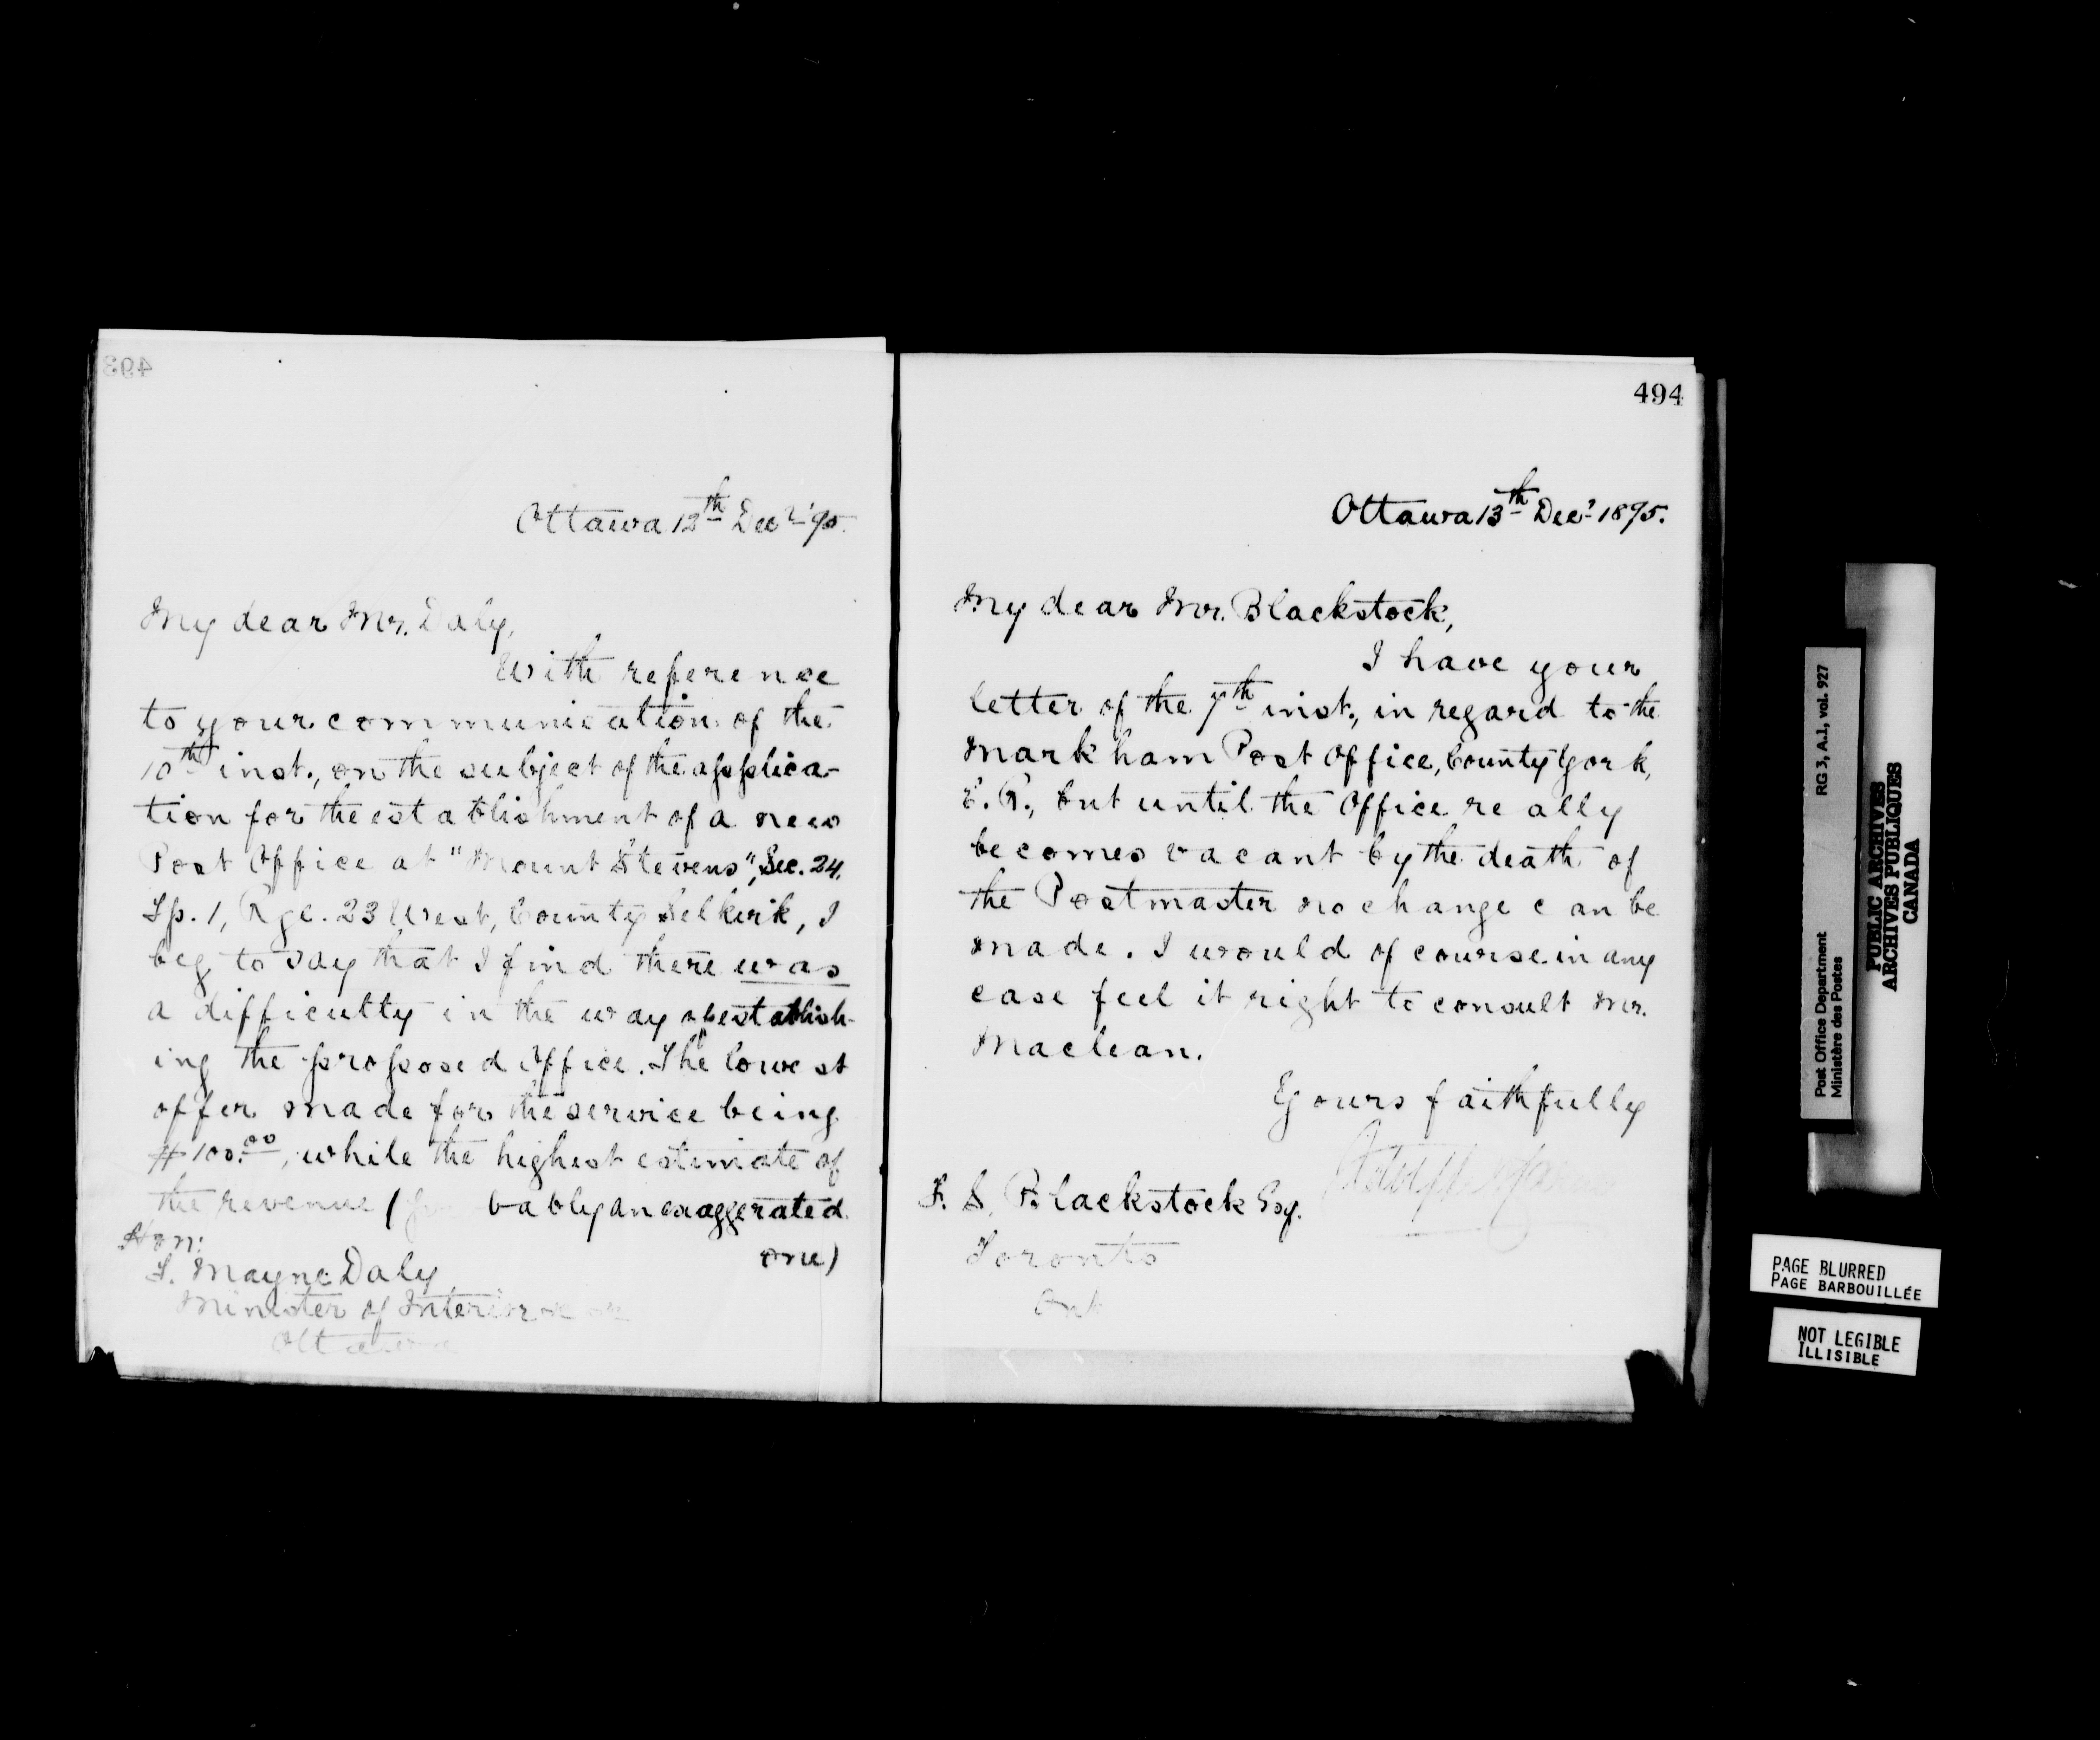 493
Ottawa 12th Decr '95.
My dear Mr. Daly,
With reference
to your communication of the
10th inst., on the subject of the applica-
tion for the establishment of a new
Post Office at "Mount Stevens", Sec. 24,
Tp. 1, Rge. 23 West, County Selkirk, I
beg to say that I find there was
a difficulty in the way of establish-
ing the proposed Office. The lowest
offer made for the service being
$100.00, while the highest estimate of
the revenue (probably an exaggerated
one)
Hon:
T. Mayne Daly
Minister of Interior
Ottawa
494
Ottawa 13th Decr 1895.
My dear Mr. Blackstock,
I have your
letter of the 7th inst., in regard to the
Markham Post Office, County York,
E.R., but until the Office really
becomes vacant by the death of
the Postmaster no change can be
made. I would of course in any
case feel it right to consult Mr.
Maclean.
Yours faithfully
F. S. Blackstock Esq.
Toronto
Ont
Post Office Department RG 3, A.1, vol. 927
Ministère des Postes
PUBLIC ARCHIVES
ARCHIVES PUBLIQUES
CANADA
PAGE BLURRED
PAGE BARBOUILLÉE
NOT LEGIBLE
ILLISIBLE